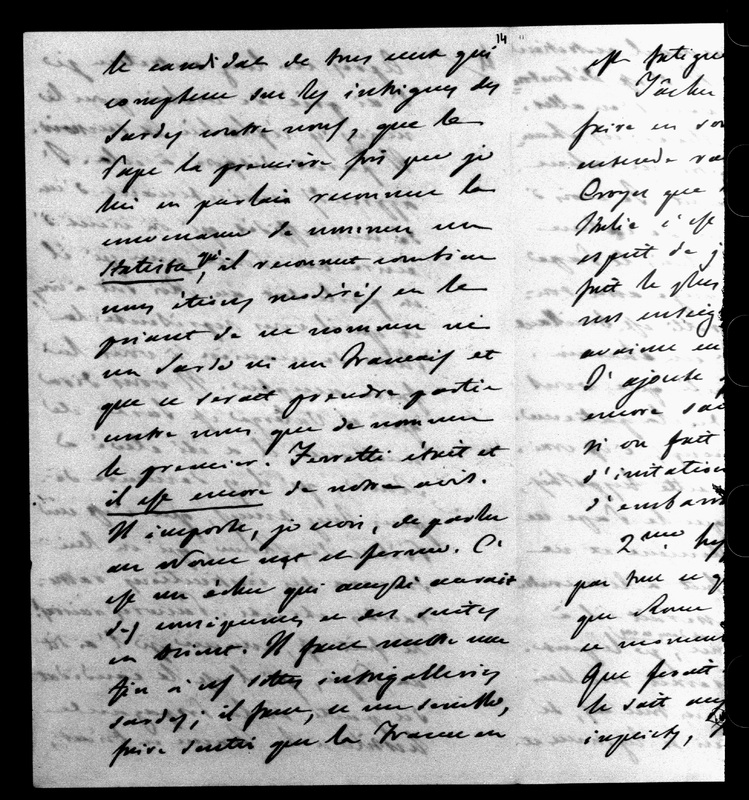 14
le candidat de tous ceux qui
comptent sur les intrigues des
Sardes contre nous, que le
Pape la première fois que je
lui en parlais reconnut la
de nommer un
Statista, il reconnut combien
nous étions modérés en le
priant de ne nommer ni
un Sarde ni un Français et
que ce serait prendre partie
contre nous que de nommer
le premier. Ferretti était et
il est encore de notre avis.
Il importe, je crois, de parler
au Nonce net et ferme. C'
est un échec qui aurait
des conséquences et des suites
en Orient. Il faut mettre une
fin à ces sottes intrigailleries
sardes; il faut, ce me semble,
faire sentir que la France en
est fatigué
Tâchez
faire en son
entende
Croyez que
Italie c'est
esprit de j
fait le plus
nos enseig
avaient en
J'ajoute
encore
si on fait
d'imitation
d'embarr
2me
par tout ce q
que Rome
ce moment
Que ferait
le sait